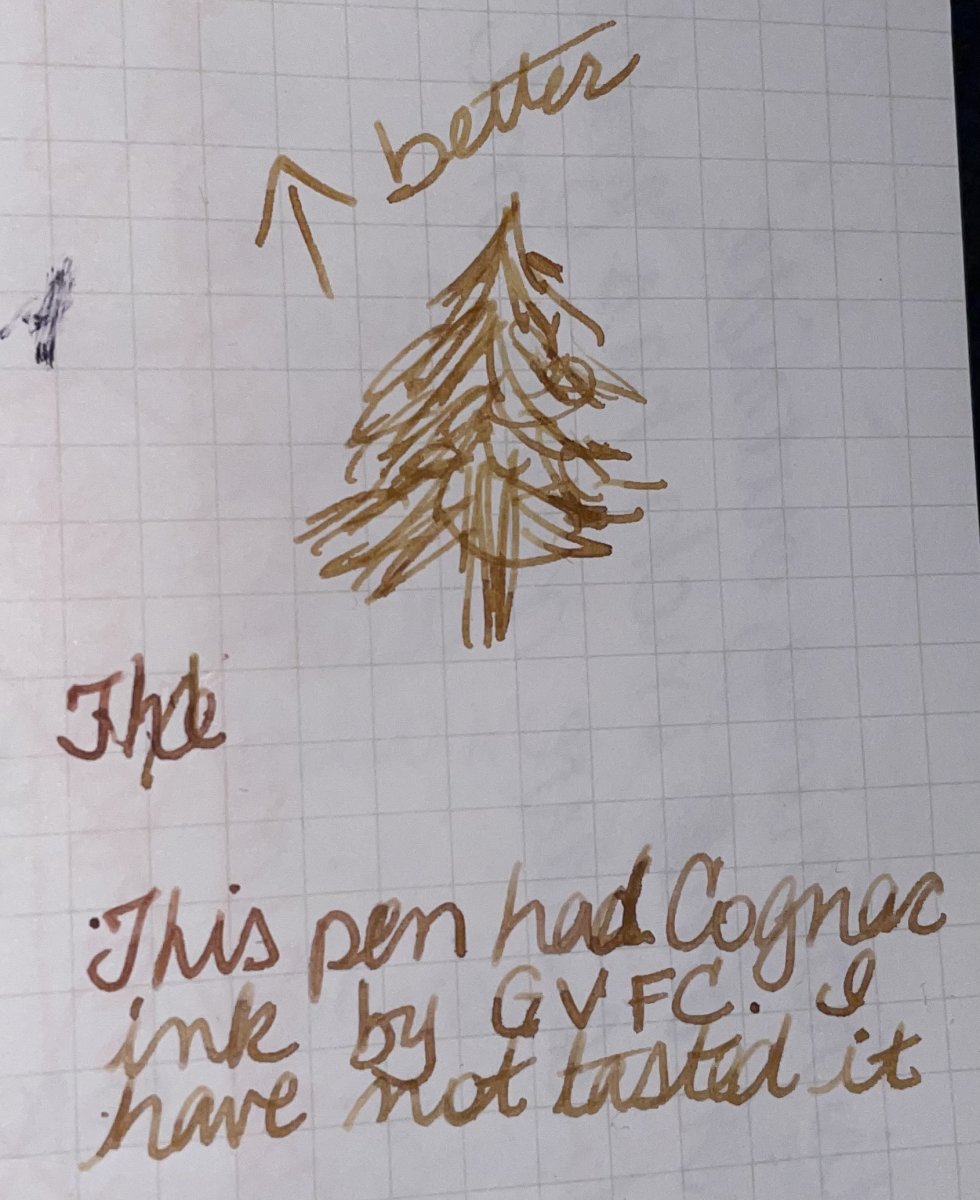 better
The
This pen had Cognac
ink by GVFC. I
have not tasted it